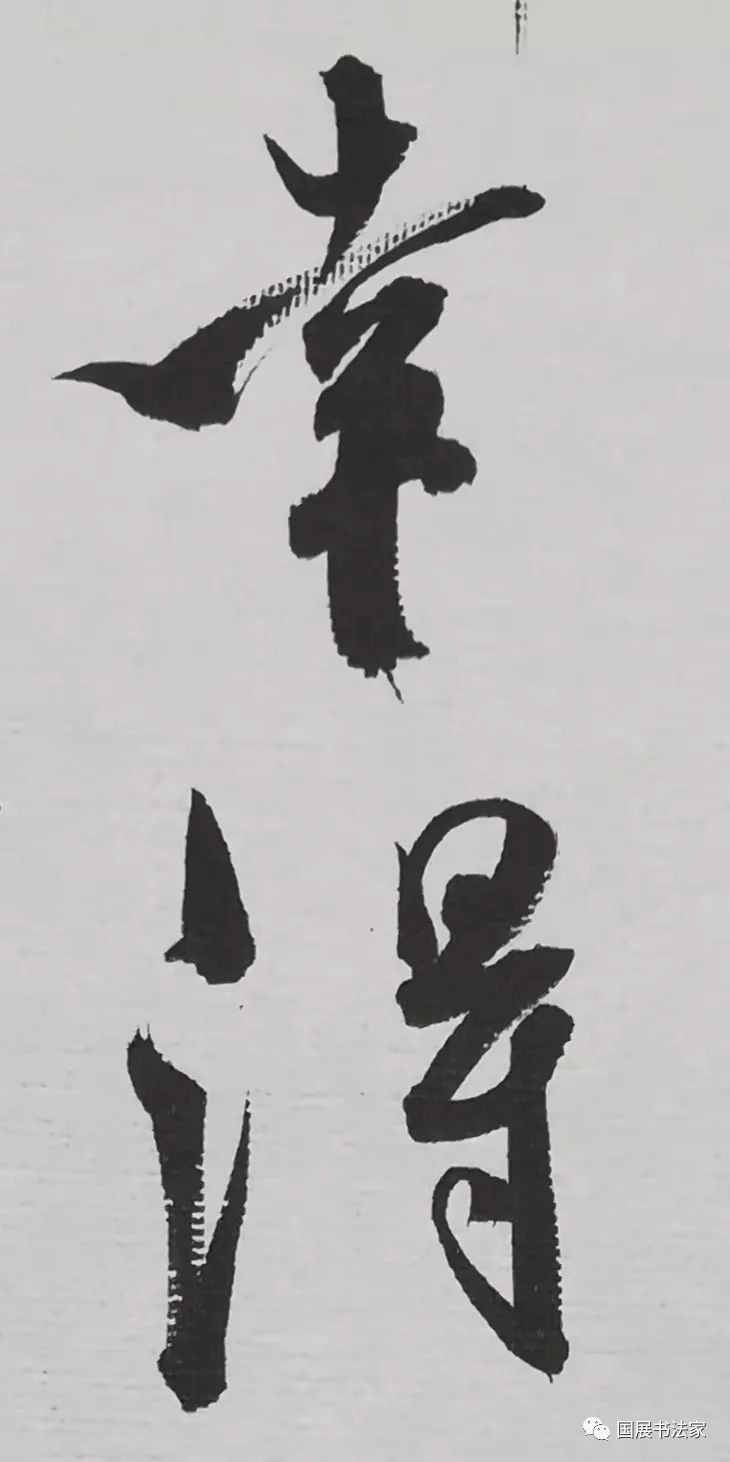 幸得
国展书法家